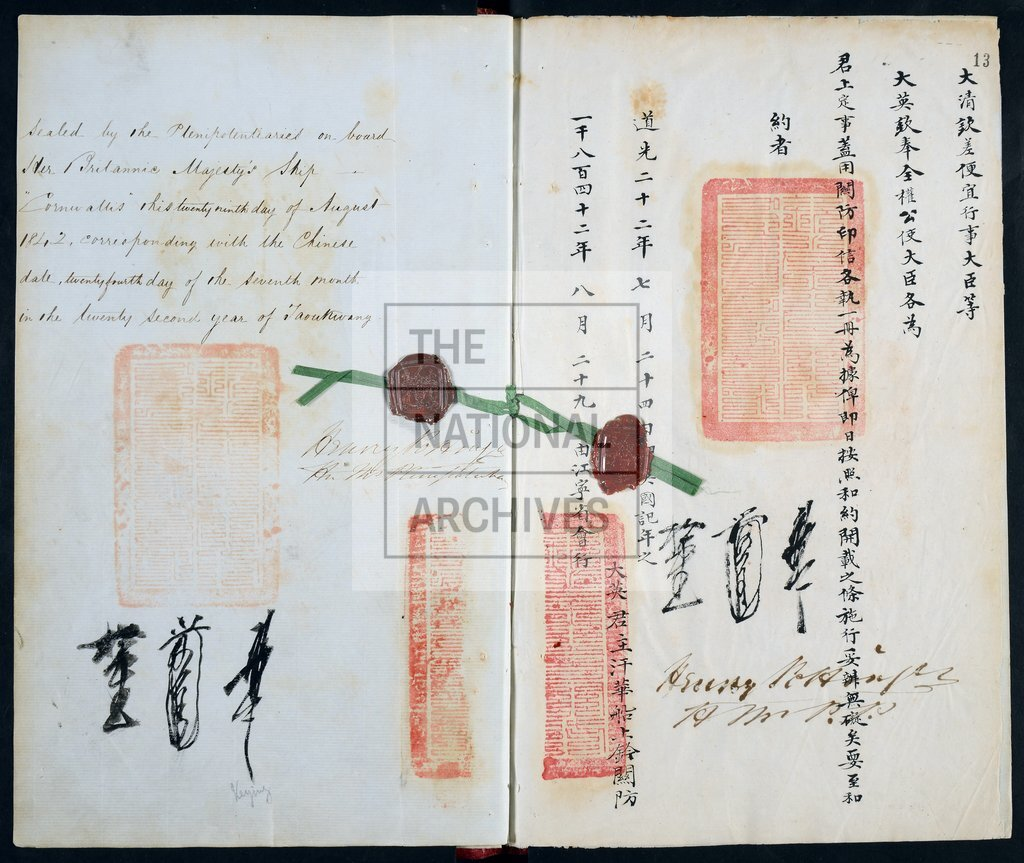 Sealed by the Plenipotentiaries on board
Her Britannic Majesty's Ship
"Cornwallis" this twenty ninth day of August
1842, corresponding with the Chinese
date, twenty fourth day of the seventh month
in the twenty second year of Taoukwang
Henry Pottinger
Keying
THE
NATIONAL
ARCHIVES
13
大清欽差便宜行事大臣等
大英欽奉全權公使大臣各為
君上定事蓋用關防印信各執一冊為據俾即日按照和約開載之條施行妥辦無礙矣要至和
約者
道光二十二年七月二十四日即英國記年之
一千八百四十二年八月二十九日由江寧省會行
大英君主汗華船上鈐關防
Henry Pottinger